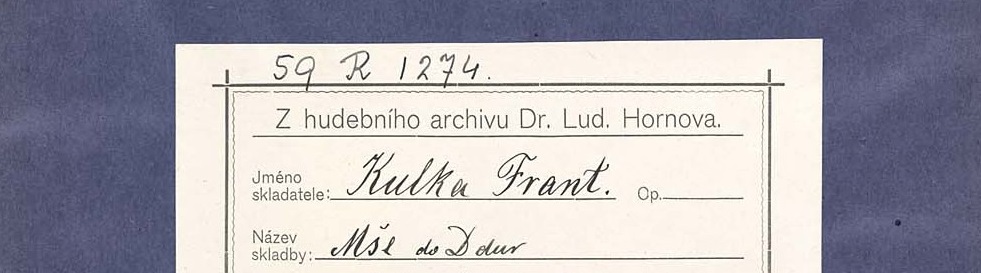 59 R 1274.
Z hudebního archivu Dr. Lud. Hornova.
Jméno skladatele: Kulka Frant. Op.
Název skladby: Mše do D dur